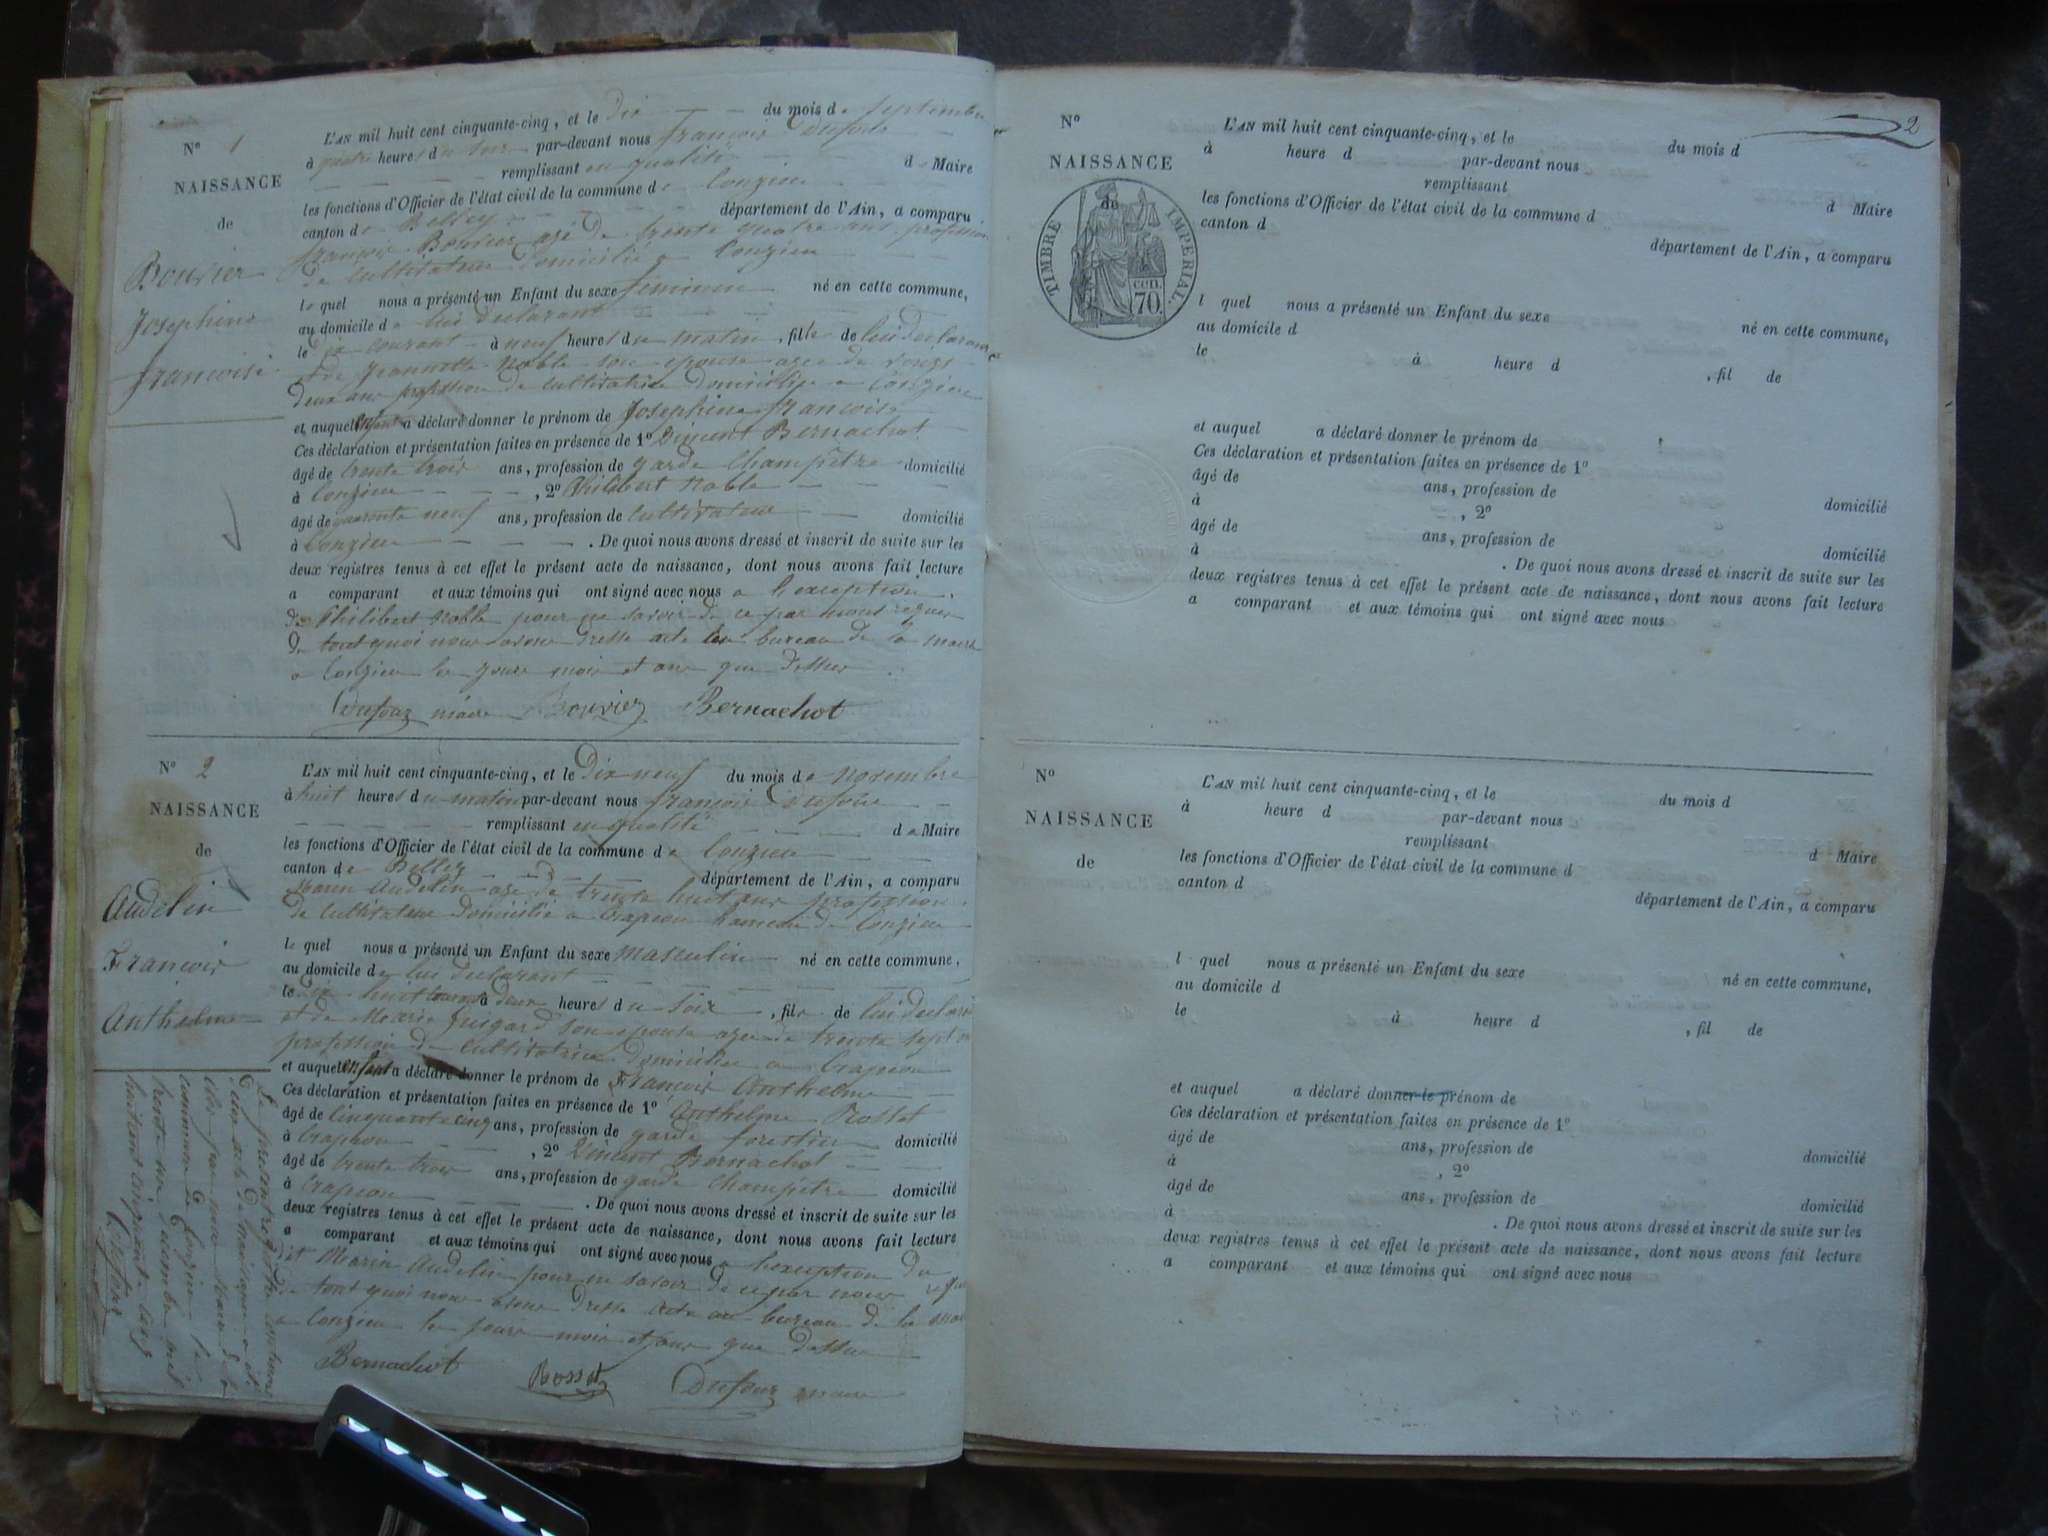 N° 1
NAISSANCE
de
Bouvier
Josephine
francoise
L'AN mil huit cent cinquante-cinq, et le Dix du mois de Septembre
à quatre heures du Soir par-devant nous françois Dufour
remplissant en qualité de Maire
les fonctions d'Officier de l'état civil de la commune de Conzieu
canton de Belley département de l'Ain, a comparu
françois Bouvier agé de trente quatre ans profession
de Cultivateur domicilié a Conzieu
le quel nous a présenté un Enfant du sexe feminin né en cette commune,
au domicile de lui declarant
le dix courant à neuf heures du matin, fille de lui declarant
et de Jeannette Noble son epouse agee de vingt
deux ans profession de cultivatrice domiciliee a Conzieu
et auquel enfant a déclaré donner le prénom de Josephine francoise
Ces déclaration et présentation faites en présence de 1° Vincent Bernachot
âgé de trente trois ans, profession de garde Champêtre domicilié
à Conzieu, 2° Philibert Noble
âgé de quarante neuf ans, profession de Cultivateur domicilié
à Conzieu. De quoi nous avons dressé et inscrit de suite sur les
deux registres tenus à cet effet le présent acte de naissance, dont nous avons fait lecture
a comparant et aux témoins qui ont signé avec nous a l'exception
de Philibert Noble pour ne savoir de ce par nous requis
De tout quoi nous avons dressé acte au bureau de la mairie
a Conzieu les jours mois et ans que Dessus
Dufour maire Bouvier Bernachot
N° 2
NAISSANCE
de
Audelin
Francois
Anthelme
L'AN mil huit cent cinquante-cinq, et le Dix neuf du mois de Novembre
à huit heures du matin par-devant nous françois Dufour
remplissant en qualité de Maire
les fonctions d'Officier de l'état civil de la commune de Conzieu
canton de Belley département de l'Ain, a comparu
Marin Audelin age de trente huit ans profession
de Cultivateur Domicilié a Crapeou hameau de Conzieu
le quel nous a présenté un Enfant du sexe masculin né en cette commune,
au domicile de lui declarant
le dix huit courant à deux heures du soir, fils de lui declarant
et de Marie Guigard son epouse agee de trente sept ans
profession de cultivatrice domiciliee a Crapeou
et auquel enfant a déclaré donner le prénom de François Anthelme
Ces déclaration et présentation faites en présence de 1° Anthelme Rosset
âgé de Cinquante cinq ans, profession de garde forestier domicilié
à Crapeou, 2° Vincent Bernachot
âgé de trente trois ans, profession de garde Champêtre domicilié
à Crapeou. De quoi nous avons dressé et inscrit de suite sur les
deux registres tenus à cet effet le présent acte de naissance, dont nous avons fait lecture
a comparant et aux témoins qui ont signé avec nous a l'exception du
dit Marin Audelin pour ne savoir de ce par nous requis
De tout quoi nous avons dresse acte au bureau de la mairie
a Conzieu les jours mois et ans que Dessus
Bernachot Rosset Dufour maire
Le present registre
des actes de naissance a été
clos par nous Maire de la
commune de Conzieu le
trente un decembre mil
huit cent cinquante cinq
Dufour
2
N°
NAISSANCE
de
TIMBRE IMPERIAL.
CEN.
70.
L'AN mil huit cent cinquante-cinq, et le du mois d
à heure d par-devant nous
remplissant d Maire
les fonctions d'Officier de l'état civil de la commune d
canton d département de l'Ain, a comparu
l quel nous a présenté un Enfant du sexe né en cette commune,
au domicile d
le à heure d , fil de
et auquel a déclaré donner le prénom de
Ces déclaration et présentation faites en présence de 1°
âgé de ans, profession de domicilié
à , 2°
âgé de ans, profession de domicilié
à . De quoi nous avons dressé et inscrit de suite sur les
deux registres tenus à cet effet le présent acte de naissance, dont nous avons fait lecture
a comparant et aux témoins qui ont signé avec nous
N°
NAISSANCE
de
L'AN mil huit cent cinquante-cinq, et le du mois d
à heure d par-devant nous
remplissant d Maire
les fonctions d'Officier de l'état civil de la commune d
canton d département de l'Ain, a comparu
l quel nous a présenté un Enfant du sexe né en cette commune,
au domicile d
le à heure d , fil de
et auquel a déclaré donner le prénom de
Ces déclaration et présentation faites en présence de 1°
âgé de ans, profession de domicilié
à , 2°
âgé de ans, profession de domicilié
à . De quoi nous avons dressé et inscrit de suite sur les
deux registres tenus à cet effet le présent acte de naissance, dont nous avons fait lecture
a comparant et aux témoins qui ont signé avec nous